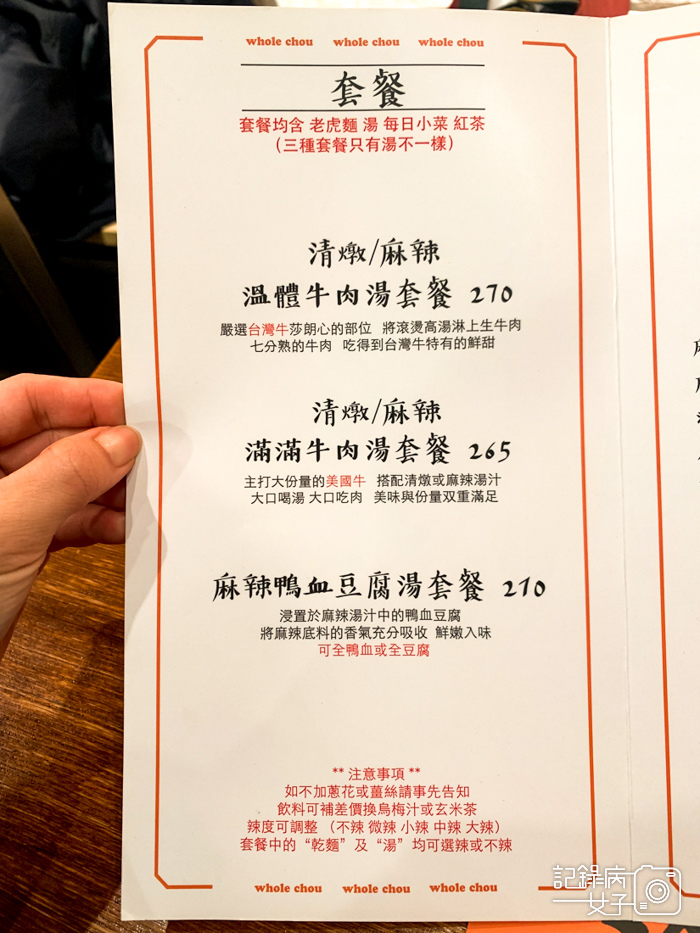 whole chou whole chou whole chou
套餐
套餐均含 老虎麵 湯 每日小菜 紅茶
（三種套餐只有湯不一樣）
清燉/麻辣
溫體牛肉湯套餐 270
嚴選台灣牛莎朗心的部位 將滾燙高湯淋上生牛肉
七分熟的牛肉 吃得到台灣牛特有的鮮甜
清燉/麻辣
滿滿牛肉湯套餐 265
主打大份量的美國牛 搭配清燉或麻辣湯汁
大口喝湯 大口吃肉 美味與份量双重滿足
麻辣鴨血豆腐湯套餐 210
浸置於麻辣湯汁中的鴨血豆腐
將麻辣底料的香氣充分吸收 鮮嫩入味
可全鴨血或全豆腐
** 注意事項 **
如不加蔥花或薑絲請事先告知
飲料可補差價換烏梅汁或玄米茶
辣度可調整 （不辣 微辣 小辣 中辣 大辣）
套餐中的“乾麵”及“湯”均可選辣或不辣
whole chou whole chou whole chou
記錄病
女子